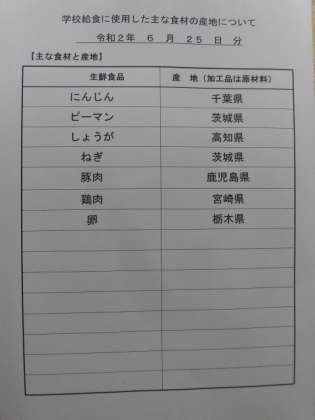 学校給食に使用した主な食材の産地について
令和２年　６　月　２５　日　分
【主な食材と産地】
生鮮食品　産　地（加工品は原材料）
にんじん　千葉県
ピーマン　茨城県
しょうが　高知県
ねぎ　茨城県
豚肉　鹿児島県
鶏肉　宮崎県
卵　栃木県